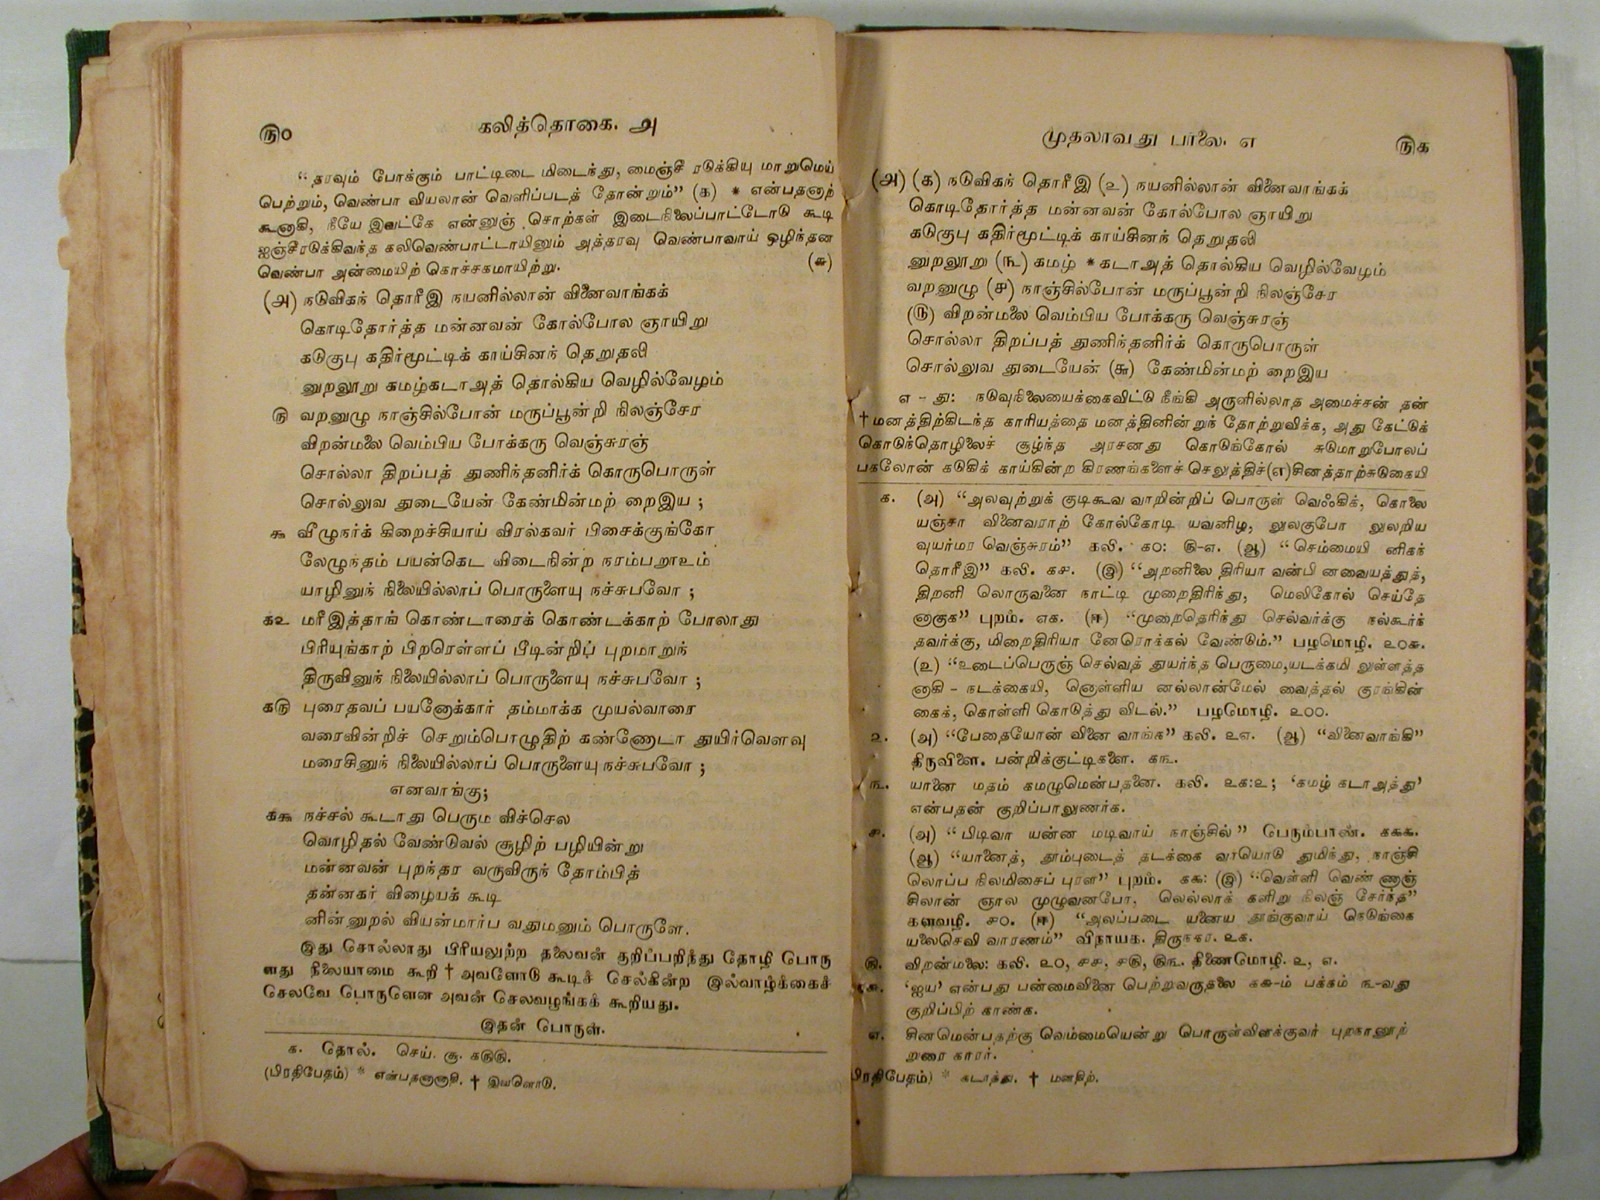 ௫௦
கலித்தொகை. அ
"தரவும் போக்கும் பாட்டிடை மிடைந்து, மைஞ்சீ ரடுக்கியு மாறுமெய்
பெற்றும், வெண்பா வியலான் வெளிப்படத் தோன்றும்" (க) * என்பதனாற்
கூனாகி, நீயே இவட்கே என்னுஞ் சொற்கள் இடைநிலைப்பாட்டோடு கூடி
ஐஞ்சீரடுக்கிவந்த கலிவெண்பாட்டாயினும் அத்தரவு வெண்பாவாய் ஒழிந்தன
வெண்பா அன்மையிற் கொச்சகமாயிற்று. (௬)
(அ) நடுவிகந் தொரீஇ நயனில்லான் வினைவாங்கக்
கொடிதோர்த்த மன்னவன் கோல்போல ஞாயிறு
கடுகுபு கதிர்மூட்டிக் காய்சினந் தெறுதலி
னுறலூறு கமழ்கடாஅத் தொல்கிய வெழில்வேழம்
௫ வறனுழு நாஞ்சில்போன் மருப்பூன்றி நிலஞ்சேர
விறன்மலை வெம்பிய போக்கரு வெஞ்சுரஞ்
சொல்லா திறப்பத் துணிந்தனிர்க் கொருபொருள்
சொல்லுவ துடையேன் கேண்மின்மற் றைஇய ;
௯ வீழுநர்க் கிறைச்சியாய் விரல்கவர் பிசைக்குங்கோ
லேழுந்தம் பயன்கெட விடைநின்ற நரம்பறூஉம்
யாழினுந் நிலையில்லாப் பொருளையு நச்சுபவோ ;
க௨ மரீஇத்தாங் கொண்டாரைக் கொண்டக்காற் போலாது
பிரியுங்காற் பிறரெள்ளப் பீடின்றிப் புறமாறுந்
திருவினுந் நிலையில்லாப் பொருளையு நச்சுபவோ ;
க௫ புரைதவப் பயனோக்கார் தம்மாக்க முயல்வாரை
வரைவின்றிச் செறும்பொழுதிற் கண்ணோடா துயிர்வௌவு
மரைசினுந் நிலையில்லாப் பொருளையு நச்சுபவோ ;
எனவாங்கு;
க௯ நச்சல் கூடாது பெரும விச்செல
வொழிதல் வேண்டுவல் சூழிற் பழியின்று
மன்னவன் புறந்தர வருவிருந் தோம்பித்
தன்னகர் விழையக் கூடி
னின்னுறல் வியன்மார்ப வதுமனும் பொருளே.
இது சொல்லாது பிரியலுற்ற தலைவன் குறிப்பறிந்து தோழி பொரு
ளது நிலையாமை கூறி † அவளோடு கூடிச் செல்கின்ற இல்வாழ்க்கைச்
செலவே பொருளென அவன் செலவழுங்கக் கூறியது.
இதன் பொருள்.
க. தொல். செய். சூ. க௫௫.
(பிரதிபேதம்) * என்பதனானாகி. † இவளொடு.
முதலாவது பாலை. எ
௫க
(அ) (க) நடுவிகந் தொரீஇ (௨) நயனில்லான் வினைவாங்கக்
கொடிதோர்த்த மன்னவன் கோல்போல ஞாயிறு
கடுகுபு கதிர்மூட்டிக் காய்சினந் தெறுதலி
னுறலூறு (௩) கமழ் * கடாஅத் தொல்கிய வெழில்வேழம்
வறனுழு (௪) நாஞ்சில்போன் மருப்பூன்றி நிலஞ்சேர
(௫) விறன்மலை வெம்பிய போக்கரு வெஞ்சுரஞ்
சொல்லா திறப்பத் துணிந்தனிர்க் கொருபொருள்
சொல்லுவ துடையேன் (௬) கேண்மின்மற் றைஇய
எ - து: நடுவுநிலையைக்கைவிட்டு நீங்கி அருளில்லாத அமைச்சன் தன்
† மனத்திற்கிடந்த காரியத்தை மனத்தினின்றுந் தோற்றுவிக்க, அது கேட்டுக்
கொடுந்தொழிலைச் சூழ்ந்த அரசனது கொடுங்கோல் சுடுமாறுபோலப்
பகலோன் கடுகிக் காய்கின்ற கிரணங்களைச் செலுத்திச்(எ)சினத்தாற்சுடுகையி
க. (அ) "அலவுற்றுக் குடிகூவ வாறின்றிப் பொருள் வெஃகிக், கொலை
யஞ்சா வினைவராற் கோல்கோடி யவனிழ, லுலகுபோ லுலறிய
வுயர்மர வெஞ்சுரம்" கலி. க௦: ௫-எ. (ஆ) "செம்மையி னிகந்
தொரீஇ" கலி. க௪. (இ) "அறனிலை திரியா வன்பி னவையத்துத்,
திறனி லொருவனை நாட்டி முறைதிரிந்து, மெலிகோல் செய்தே
னாகுக" புறம். எக. (ஈ) "முறைதெரிந்து செல்வர்க்கு நல்கூர்க்
தவர்க்கு, மிறைதிரியா னேரொக்கல் வேண்டும்." பழமொழி. ௨௦௯.
(௨) "உடைப்பெருஞ் செல்வத் துயர்ந்த பெருமை,யடக்கமி லுள்ளத்த
னாகி - நடக்கையி, னொள்ளிய னல்லான்மேல் வைத்தல் குரங்கின்
கைக், கொள்ளி கொடுத்து விடல்." பழமொழி. ௨௦௦.
௨. (அ) "பேதையோன் வினை வாங்க" கலி. ௨எ. (ஆ) "வினைவாங்கி"
திருவிளை. பன்றிக்குட்டிகளை. க௩.
௩. யானை மதம் கமழுமென்பதனை. கலி. ௨க:௨; 'கமழ் கடாஅத்து'
என்பதன் குறிப்பாலுணர்க.
௪. (அ) "பிடிவா யன்ன மடிவாய் நாஞ்சில்" பெரும்பாண். க௯௯.
(ஆ) "யானைத், தூம்புடைத் தடக்கை வாயொடு துமிந்து, நாஞ்சி
லொப்ப நிலமிசைப் புரள" புறம். க௯: (இ) "வெள்ளி வெண் ணாஞ்
சிலான் ஞால முழுவனபோ, லெல்லாக் களிறு நிலஞ் சேர்ந்த"
களவழி. ௪௦. (ஈ) "அலப்படை யனைய தூங்குவாய் நெடுங்கை
யலைசெவி வாரணம்" விநாயக. திருநகர. ௨க.
௫. விறன்மலை: கலி. ௨௦, ௪௪, ௪௫, ௫௩. திணைமொழி. ௨, எ.
௬. 'ஐய' என்பது பன்மைவினை பெற்றவருதலை க௬-ம் பக்கம் ௩-வது
குறிப்பிற் காண்க.
எ. சினமென்பதற்கு வெம்மையென்று பொருள்விளக்குவர் புறநானூற்
றுரை காரர்.
பிரதிபேதம்) * கடாத்து. † மனதிற்.